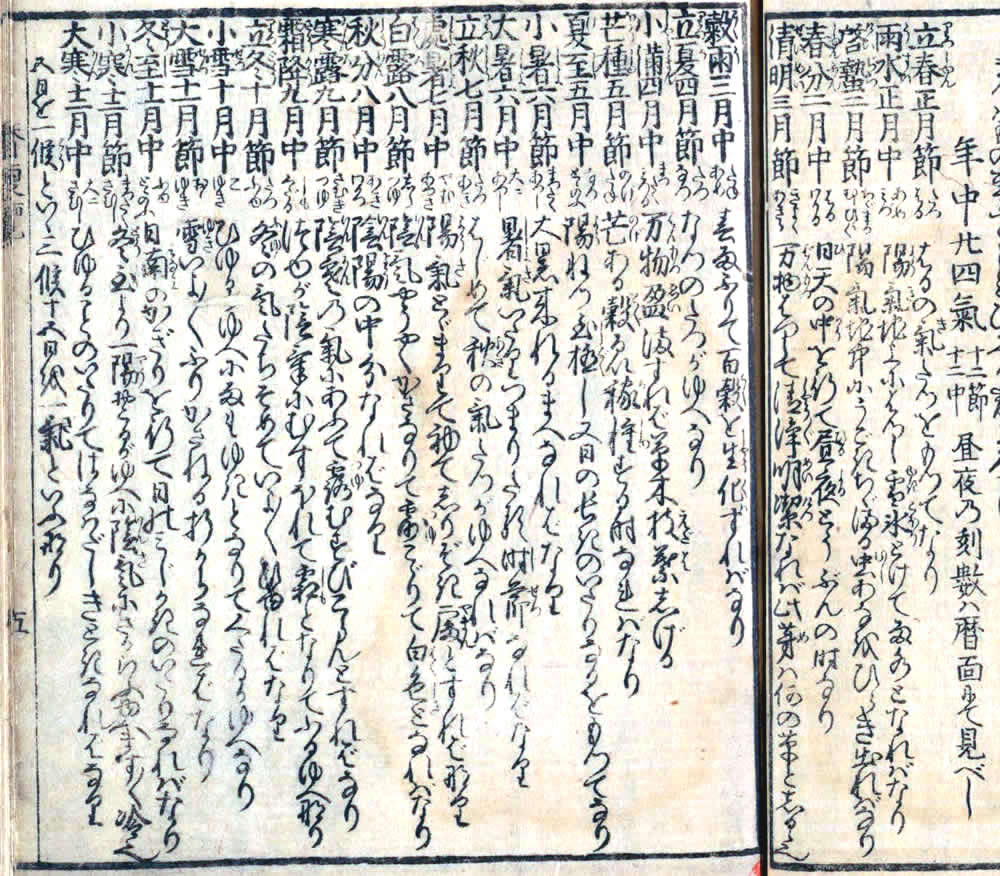 年中廿四氣 十二節 十二中 昼夜乃刻數ハ暦面にて見べし
立春正月節 はるの氣たつをもつてなり
雨水正月中 陽氣地上にはつし雪氷とけて雨水となれバなり
啓蟄二月節 陽氣地中にうごきちゞまる虫あなをひらき出れバなり
春分二月中 日天の中を行て昼夜とうぶんの時なり
清明三月節 万物はつして清浄明潔なれバ此芽ハ何の草としるゝ也
穀雨三月中 春雨ふりて百穀を生化すれバなり
立夏四月節 なつのたつがゆへなり
小満四月中 万物盈満すれバ草木枝葉しげる
芒種五月節 芒ある穀るい稼種する時なれバなり
夏至五月中 陽熱至極し又日の長きのいたりなるをもつてなり
小暑六月節 大暑来れるまへなれバなり
大暑六月中 暑氣いたりつまりたる時節なれバなり
立秋七月節 はじめて秋の氣たつがゆへなれバなり
處暑七月中 陽氣とゞまりて初てしりぞき處とすれバ也
白露八月節 陰氣やうやくかさなりて露こごりて白色となれバなり
秋分八月中 陰陽の中分なれバなり
寒露九月節 陰寒の氣にあふて露むすびこらんとすれバなり
霜降九月中 つゆが陰氣にむすぼれて霜となりてふるゆへ也
立冬十月節 冬の氣たちそめていよ〱ひゆれバなり
小雪十月中 ひゆるがゆへ雨もゆきとなりてくだるがゆへなり
大雪十一月節 雪いよ〱ふりかさねる折からなれバなり
冬至十一月中 日南のかぎりを行て日みじかきのいたりなれバなり
小寒十二月節 冬至より一陽起るがゆへに陰氣にさからふ故ます〱冷也
大寒十二月中 ひゆることのいたりてはなはだしきときなれバなり
五日を一候といふ三候十五日を一氣といふ也